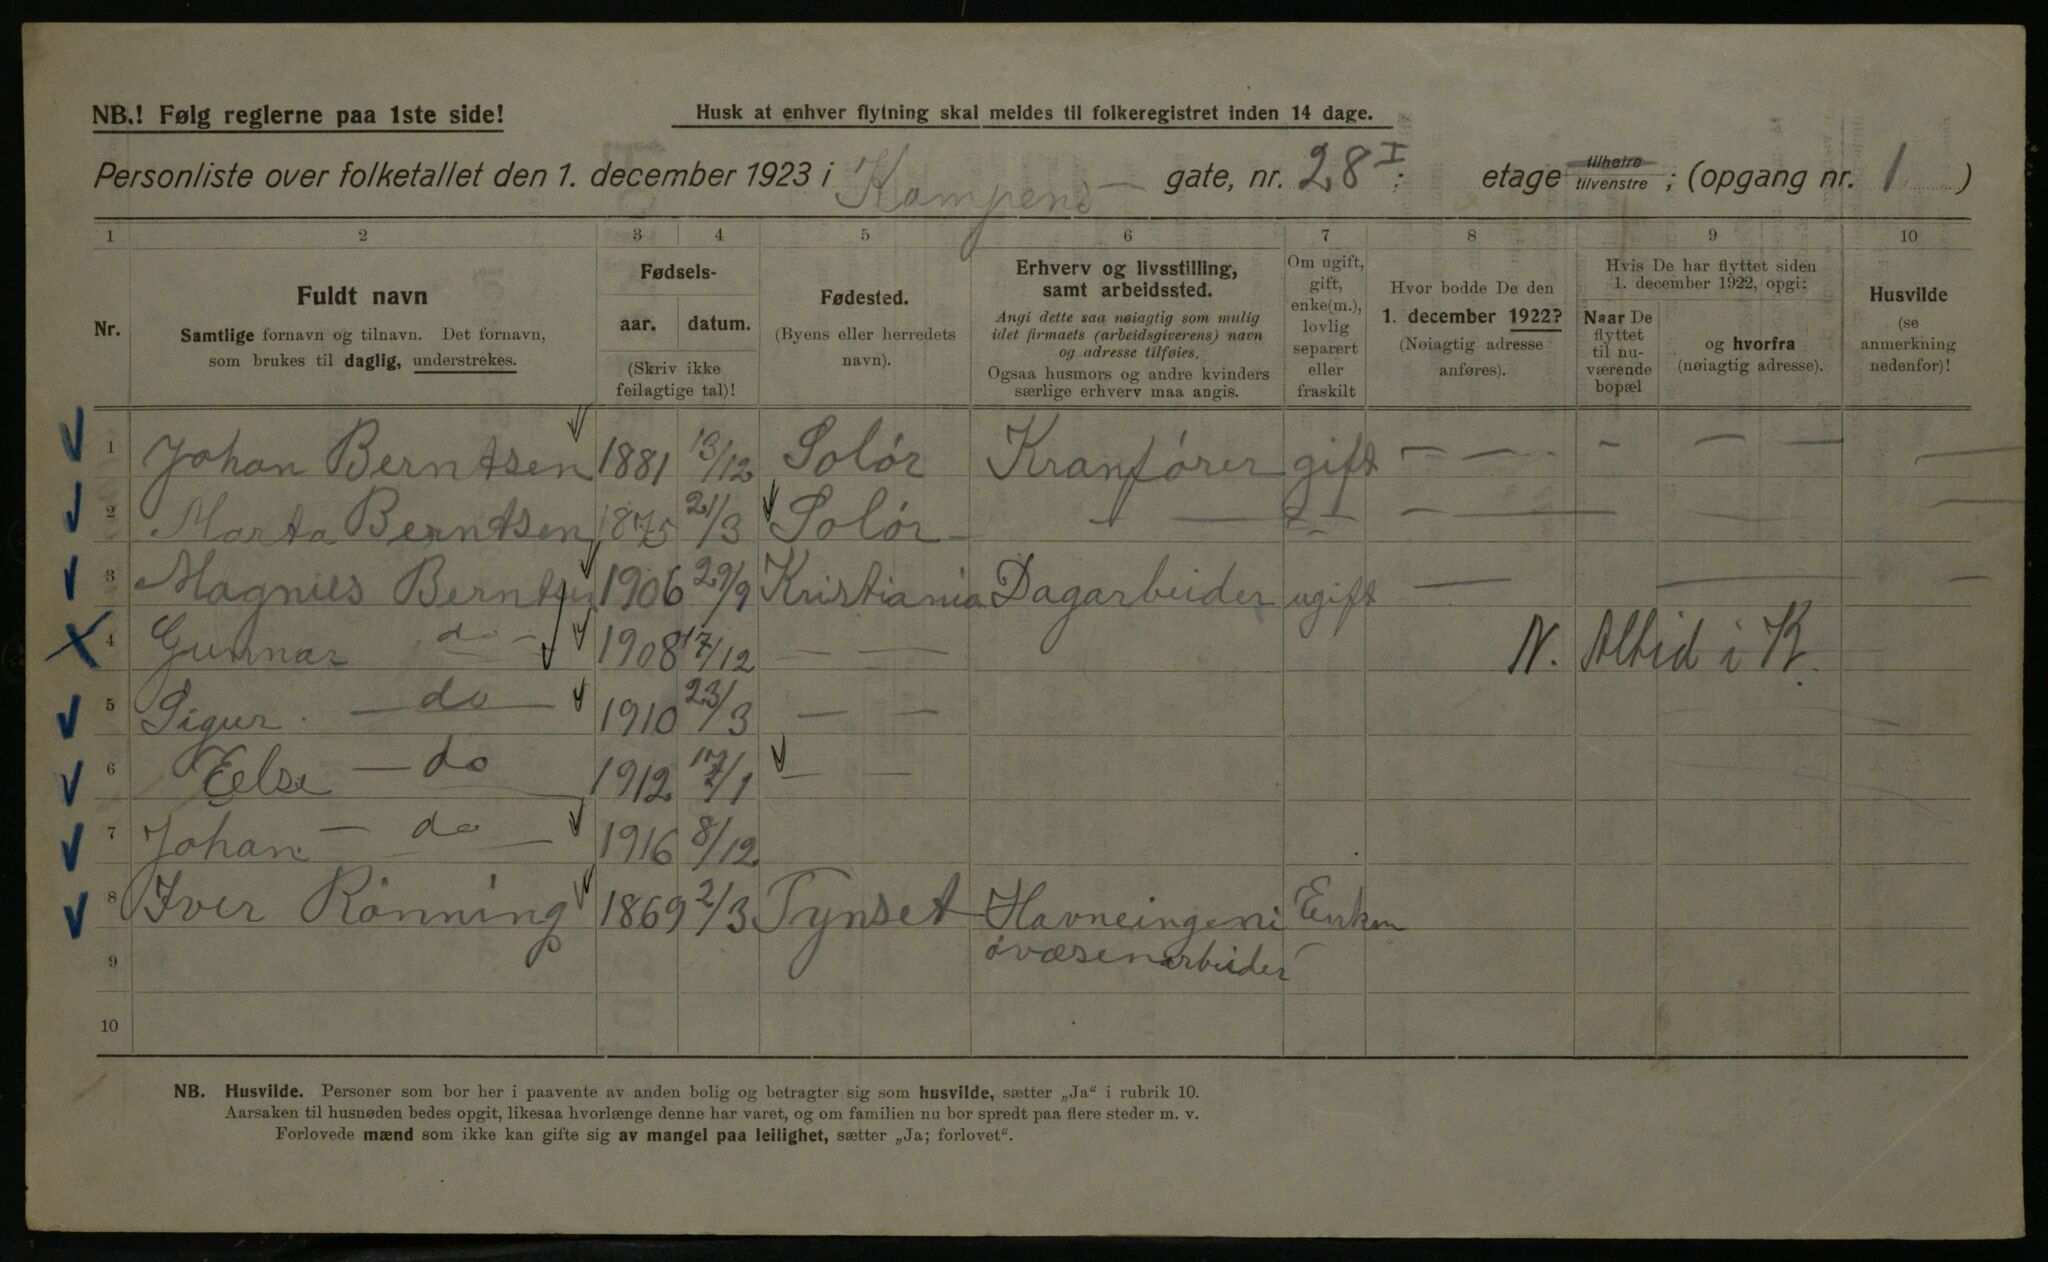 NB.! Følg reglerne paa 1ste side!
Husk at enhver flytning skal meldes til folkeregistret inden 14 dage.
Personliste over folketallet den 1. december 1923 i Kampens — gate, nr. 28 I; etage tilhøire tilvenstre ; (opgang nr. 1 )
1 2 3 4 5 6 7 8 9 10
Nr.
Fuldt navn
Samtlige fornavn og tilnavn. Det fornavn,
som brukes til daglig, understrekes.
Fødsels-
aar. datum.
(Skriv ikke
feilagtige tal)!
Fødested.
(Byens eller herredets
navn).
Erhverv og livsstilling,
samt arbeidssted.
Angi dette saa nøiagtig som mulig
idet firmaets (arbeidsgiverens) navn
og adresse tilføies.
Ogsaa husmors og andre kvinders
særlige erhverv maa angis.
Om ugift,
gift,
enke(m.),
lovlig
separert
eller
fraskilt
Hvor bodde De den
1. december 1922?
(Nøiagtig adresse
anføres).
Hvis De har flyttet siden
1. december 1922, opgi:
Naar De
flyttet
til nu-
værende
bopæl
og hvorfra
(nøiagtig adresse).
Husvilde
(se
anmerkning
nedenfor)!
1 Johan Berntsen 1881 13/12 Solór Kranfórer gift — — - — — —
2 Marta Berntsen 1875 21/3 Solór — — — — —
3 Magnus Berntsen 1906 29/9 Kristiania Dagarbeider ugift — — —
4 Gunnar do — 1908 17/12 — — N. Altid i K.
5 Sigur. — do — 1910 23/3 — —
6 Eelse — do 1912 17/1 — —
7 Johan — do — 1916 8/12
8 Iver Rönning 1869 2/3 Tynset Havneingeni Enkem
9 óvæsenarbeider
10
NB. Husvilde. Personer som bor her i paavente av anden bolig og betragter sig som husvilde, sætter „Ja“ i rubrik 10.
Aarsaken til husnøden bedes opgit, likesaa hvorlænge denne har varet, og om familien nu bor spredt paa flere steder m. v.
Forlovede mænd som ikke kan gifte sig av mangel paa leilighet, sætter „Ja; forlovet“.